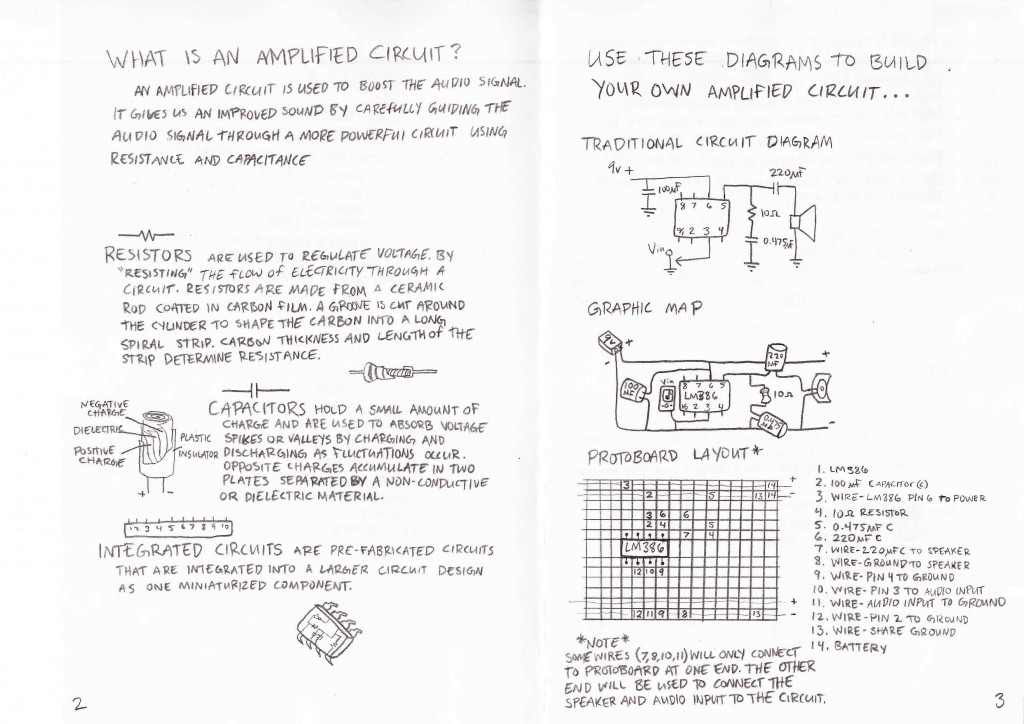 WHAT IS AN AMPLIFIED CIRCUIT?
AN AMPLIFIED CIRCUIT IS USED TO BOOST THE AUDIO SIGNAL.
IT GIVES US AN IMPROVED SOUND BY CAREFULLY GUIDING THE
AUDIO SIGNAL THROUGH A MORE POWERFUL CIRCUIT USING
RESISTANCE AND CAPACITANCE
RESISTORS ARE USED TO REGULATE VOLTAGE. BY
"RESISTING" THE FLOW OF ELECTRICITY THROUGH A
CIRCUIT. RESISTORS ARE MADE FROM A CERAMIC
ROD COATED IN CARBON FILM. A GROOVE IS CUT AROUND
THE CYLINDER TO SHAPE THE CARBON INTO A LONG
SPIRAL STRIP. CARBON THICKNESS AND LENGTH OF THE
STRIP DETERMINE RESISTANCE.
NEGATIVE
CHARGE
DIELECTRIC
POSITIVE
CHARGE
PLASTIC
INSULATOR
+ -
CAPACITORS HOLD A SMALL AMOUNT OF
CHARGE AND ARE USED TO ABSORB VOLTAGE
SPIKES OR VALLEYS BY CHARGING AND
DISCHARGING AS FLUCTUATIONS OCCUR.
OPPOSITE CHARGES ACCUMULATE IN TWO
PLATES SEPARATED BY A NON-CONDUCTIVE
OR DIELECTRIC MATERIAL.
1 2 3 4 5 6 7 8 9 10
INTEGRATED CIRCUITS ARE PRE-FABRICATED CIRCUITS
THAT ARE INTEGRATED INTO A LARGER CIRCUIT DESIGN
AS ONE MINIATURIZED COMPONENT.
2
USE THESE DIAGRAMS TO BUILD
YOUR OWN AMPLIFIED CIRCUIT...
TRADITIONAL CIRCUIT DIAGRAM
9V +
100µF
220µF
8 7 6 5
2 3 4
10Ω
0.475µF
Vin
GRAPHIC MAP
9V
+
220
MF
+
100
MF
Vin
8 7 6 5
LM386
2 3 4
10Ω
0.475
MF
-
PROTOBOARD LAYOUT*
3 14 +
2 5 13 14 -
3 6 6
2 4 5
7 4
LM386
12 10 9
+
12 11 9 8 13 -
1. LM386
2. 100µF CAPACITOR (C)
3. WIRE-LM386 PIN 6 TO POWER
4. 10Ω RESISTOR
5. 0.475MF C
6. 220µF C
7. WIRE-220µFC TO SPEAKER
8. WIRE-GROUND TO SPEAKER
9. WIRE-PIN 4 TO GROUND
10. WIRE-PIN 3 TO AUDIO INPUT
11. WIRE-AUDIO INPUT TO GROUND
12. WIRE-PIN 2 TO GROUND
13. WIRE-SHARE GROUND
14. BATTERY
*NOTE*
SOME WIRES (7,8,10,11) WILL ONLY CONNECT
TO PROTOBOARD AT ONE END. THE OTHER
END WILL BE USED TO CONNECT THE
SPEAKER AND AUDIO INPUT TO THE CIRCUIT.
3